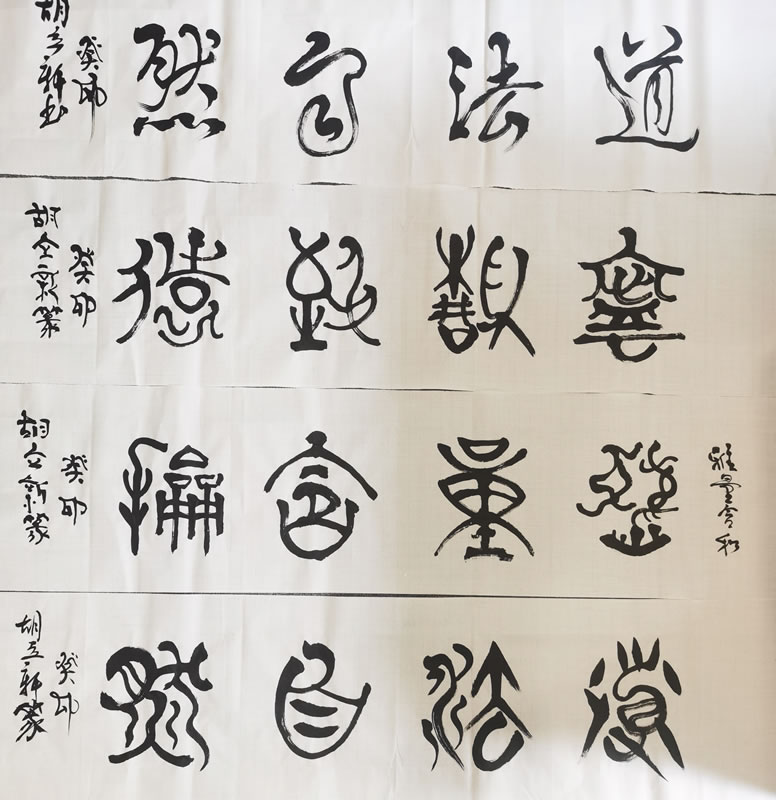 道法自然
癸卯
胡立新书
寧靜致遠
癸卯
胡立新篆
雅量含和
雅量含龢
癸卯
胡立新篆
道法自然
癸卯
胡立新篆